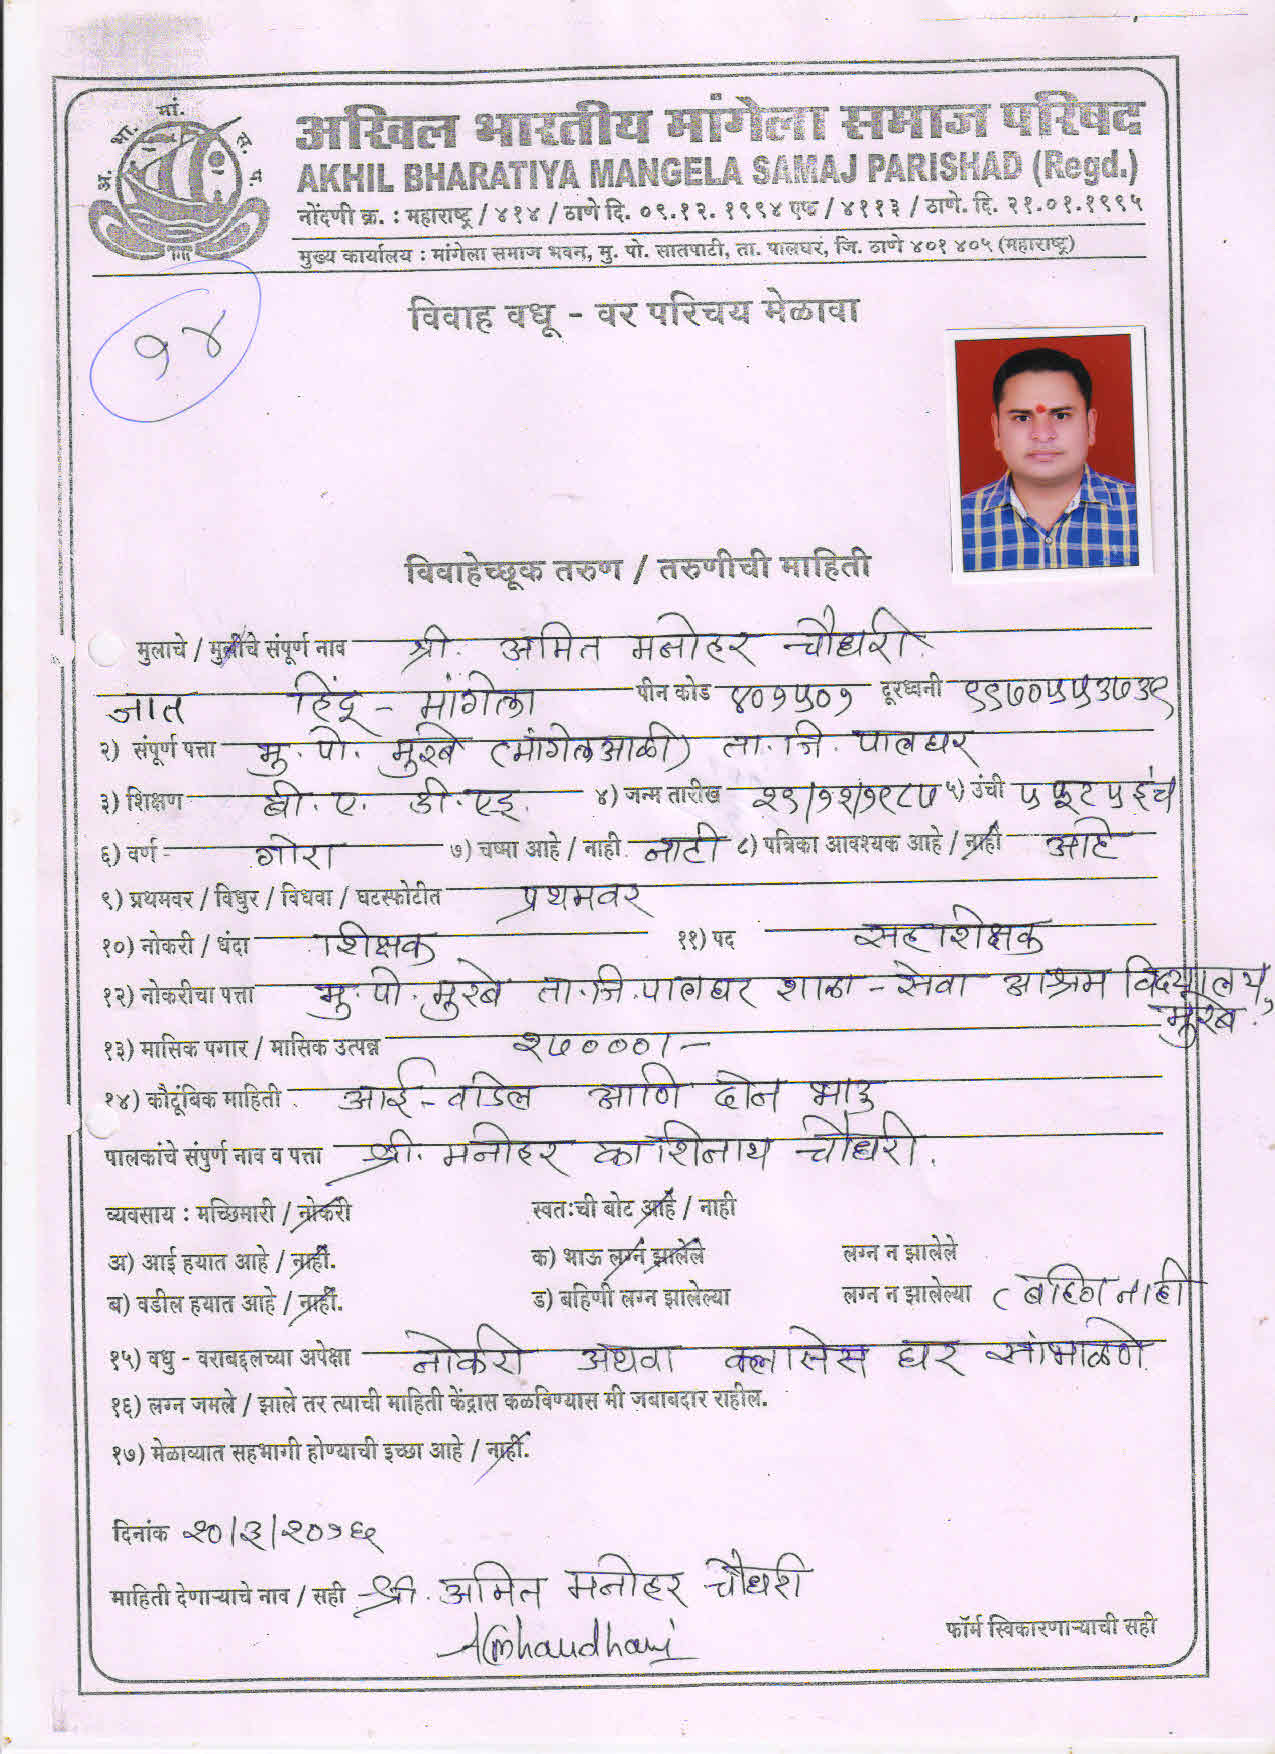 अ. भा. मां. स. प.
अखिल भारतीय मांगेला समाज परिषद
AKHIL BHARATIYA MANGELA SAMAJ PARISHAD (Regd.)
नोंदणी क्र. : महाराष्ट्र / ४१४ / ठाणे दि. ०९.१२. १९९४ एफ / ४११३ / ठाणे. दि. २१.०१.१९९५
मुख्य कार्यालय : मांगेला समाज भवन, मु. पो. सातपाटी, ता. पालघर, जि. ठाणे ४०१ ४०५ (महाराष्ट्र)
१४
विवाह वधू - वर परिचय मेळावा
विवाहेच्छूक तरुण / तरुणीची माहिती
मुलाचे / मुलीचे संपूर्ण नाव श्री. अमित मनोहर चौधरी.
जात हिंदू - मांगेला पीन कोड ४०१५०१ दूरध्वनी ९९७०५५३७३९
२) संपूर्ण पत्ता मु. पो. मुरबे (मांगेलआळी) ता. जि. पालघर
३) शिक्षण बी. ए. डी. एड्. ४) जन्म तारीख २९/१२/१९८५ ५) उंची ५ फूट ५ इंच
६) वर्ण - गोरा ७) चष्मा आहे / नाही नाही ८) पत्रिका आवश्यक आहे / नाही आहे
९) प्रथमवर / विधुर / विधवा / घटस्फोटीत प्रथमवर
१०) नोकरी / धंदा शिक्षक ११) पद सहाशिक्षक
१२) नोकरीचा पत्ता मु. पो. मुरबे ता. जि. पालघर शाळा - सेवा आश्रम विद्यालय,
मुरबे.
१३) मासिक पगार / मासिक उत्पन्न २७०००/-
१४) कौटूंबिक माहिती आई - वडिल आणि दोन भाऊ
पालकांचे संपुर्ण नाव व पत्ता श्री. मनोहर काशिनाथ चौधरी.
व्यवसाय : मच्छिमारी / नोकरी स्वतःची बोट आहे / नाही
अ) आई हयात आहे / नाही. क) भाऊ लग्न झालेले लग्न न झालेले
ब) वडील हयात आहे / नाही. ड) बहिणी लग्न झालेल्या लग्न न झालेल्या ( बहिण नाही
१५) वधु - वराबद्दलच्या अपेक्षा नोकरी अथवा क्लासेस घर सांभाळणे.
१६) लग्न जमले / झाले तर त्याची माहिती केंद्रास कळविण्यास मी जबाबदार राहील.
१७) मेळाव्यात सहभागी होण्याची इच्छा आहे / नाही.
दिनांक २०/३/२०१६
माहिती देणाऱ्याचे नाव / सही श्री. अमित मनोहर चौधरी
AMChaudhari
फॉर्म स्विकारणाऱ्याची सही